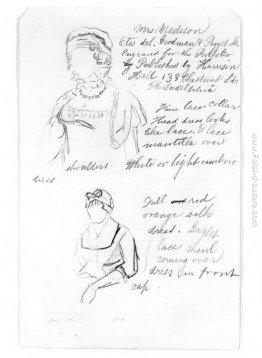 Mrs. Madison
Otis del. Goodman & Piggot Sc.
Engraved for the Portfolio
by Published by Harrison
Hall 133 Chestnut St.
Philadelphia
Fine lace collar
Head dress looks
like lace. Lace
mantilla over
shoulders. White or light cambric
dress
Full red
orange silk
dress. Light
lace shawl
coming over
dress in front
cap